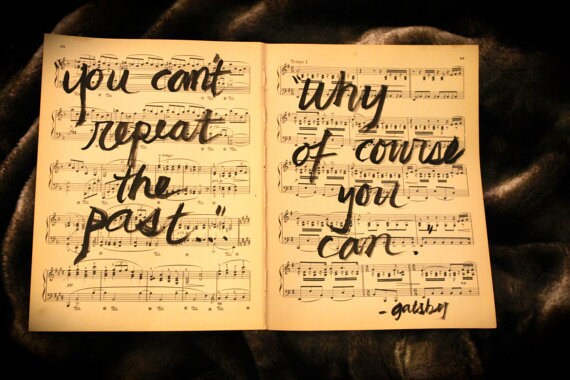 "you can't
repeat
the
past..."
"Why
of course
you
can."
- gatsby